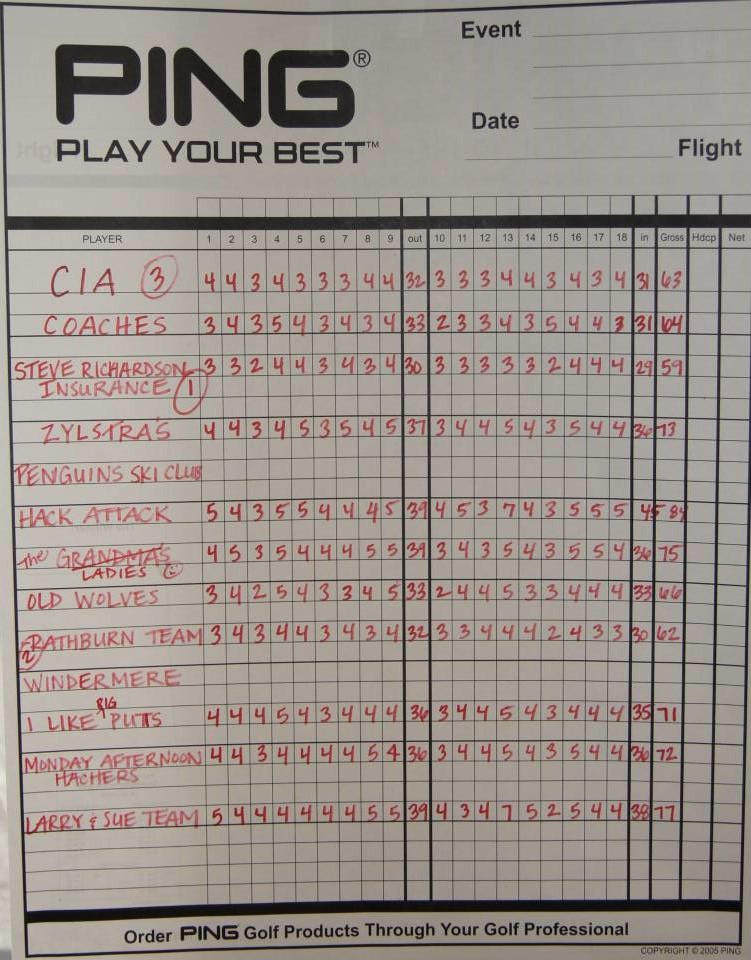 Event
PING®
Date
PLAY YOUR BEST™
Flight
PLAYER 1 2 3 4 5 6 7 8 9 out 10 11 12 13 14 15 16 17 18 in Gross Hdcp Net
CIA 3 4 4 3 4 3 3 3 4 4 32 3 3 3 4 4 3 4 3 4 31 63
COACHES 3 4 3 5 4 3 4 3 4 33 2 3 3 4 3 5 4 4 3 31 64
STEVE RICHARDSON 3 3 2 4 4 3 4 3 4 30 3 3 3 3 3 2 4 4 4 29 59
INSURANCE 1
ZYLSTRA'S 4 4 3 4 5 3 5 4 5 37 3 4 4 5 4 3 5 4 4 36 73
PENGUINS SKI CLUB
HACK ATTACK 5 4 3 5 5 4 4 4 5 39 4 5 3 7 4 3 5 5 5 45 84
The GRANDMAS 4 5 3 5 4 4 4 5 5 39 3 4 3 5 4 3 5 5 4 36 75
LADIES
OLD WOLVES 3 4 2 5 4 3 3 4 5 33 2 4 4 5 3 3 4 4 4 33 66
2 RATHBURN TEAM 3 4 3 4 4 3 4 3 4 32 3 3 4 4 4 2 4 3 3 30 62
WINDERMERE
BIG
I LIKE PUTTS 4 4 4 5 4 3 4 4 4 36 3 4 4 5 4 3 4 4 4 35 71
MONDAY AFTERNOON 4 4 3 4 4 4 4 5 4 36 3 4 4 5 4 3 5 4 4 36 72
HACHERS
LARRY & SUE TEAM 5 4 4 4 4 4 4 5 5 39 4 3 4 7 5 2 5 4 4 38 77
Order PING Golf Products Through Your Golf Professional
COPYRIGHT © 2005 PING